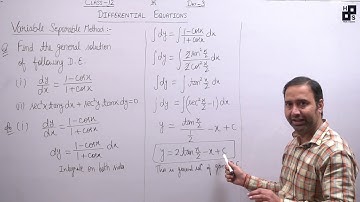 CLASS-12
DIFFERENTIAL EQUATIONS
Variable Separable Method:-
Q Find the general solution
of following D.E.
(i) dy/dx = (1-cosx)/(1+cosx)
(ii) sec²x tany dx + sec²y tanx dy = 0
(i) dy/dx = (1-cosx)/(1+cosx)
dy = (1-cosx)/(1+cosx) dx
Integrate on both sides
∫dy = ∫(1-cosx)/(1+cosx) dx
∫dy = ∫(2sin² x/2)/(2cos² x/2) dx
∫dy = ∫tan² x/2 dx
∫dy = ∫(sec² x/2 -1) dx
y = (tan x/2)/(1/2) - x + c
y = 2tan x/2 - x + c
This is general solⁿ of